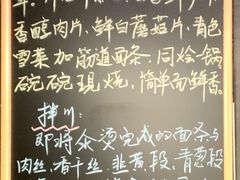 香醇肉片，鲜白蘑菇片，青色
雪菜加筋道面条，同烩一锅
碗碗现烧，简单而鲜香。
拌川：
即将汆烫完成的面条与
肉丝，香干丝，韭黄段，青葱段